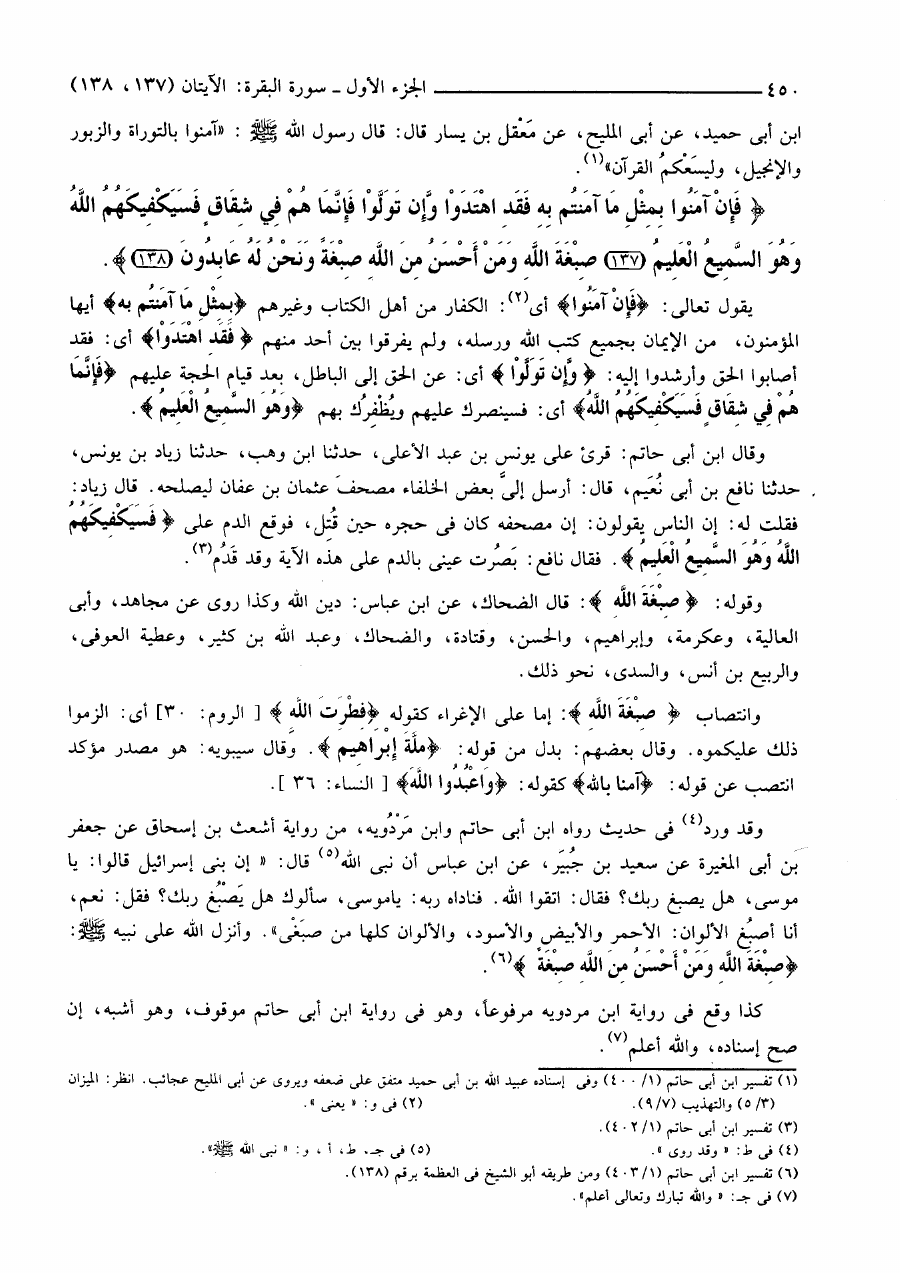 ٤٥٠ ــــــــــــــــــــ الجزء الأول ـ سورة البقرة: الآيتان (١٣٧ ، ١٣٨)
ابن أبى حميد، عن أبى المليح، عن مَعْقل بن يسار قال: قال رسول الله ﷺ : «آمنوا بالتوراة والزبور
والإنجيل، وليسَعْكمُ القرآن»(١).
﴿ فَإِنْ آمَنُوا بِمِثْلِ مَا آمَنتُم بِهِ فَقَدِ اهْتَدَوْا وَّإِن تَوَلَّوْا فَإِنَّمَا هُمْ فِي شِقَاقٍ فَسَيَكْفِيكَهُمُ اللَّهُ
وَهُوَ السَّمِيعُ الْعَلِيمُ (١٣٧) صِبْغَةَ اللَّهِ وَمَنْ أَحْسَنُ مِنَ اللَّهِ صِبْغَةً وَنَحْنُ لَهُ عَابِدُونَ (١٣٨) ﴾ .
يقول تعالى: ﴿فَإِنْ آمَنُوا﴾ أى(٢): الكفار من أهل الكتاب وغيرهم ﴿بِمِثْلِ مَا آمَنتُم بِهِ﴾ أيها
المؤمنون، من الإيمان بجميع كتب الله ورسله، ولم يفرقوا بين أحد منهم ﴿ فَقَدِ اهْتَدَوْا﴾ أى: فقد
أصابوا الحق وأرشدوا إليه: ﴿ وَّإِن تَوَلَّوْا ﴾ أى: عن الحق إلى الباطل، بعد قيام الحجة عليهم ﴿فَإِنَّمَا
هُمْ فِي شِقَاقٍ فَسَيَكْفِيكَهُمُ اللَّهُ﴾ أى: فسينصرك عليهم ويُظْفِرُك بهم ﴿وَهُوَ السَّمِيعُ الْعَلِيمُ ﴾ .
وقال ابن أبى حاتم: قرئ على يونس بن عبد الأعلى، حدثنا ابن وهب، حدثنا زياد بن يونس،
حدثنا نافع بن أبى نُعَيم، قال: أرسل إلىَّ بعض الخلفاء مصحفَ عثمان بن عفان ليصلحه. قال زياد:
فقلت له: إن الناس يقولون: إن مصحفه كان فى حجره حين قُتِل، فوقع الدم على ﴿ فَسَيَكْفِيكَهُمُ
اللَّهُ وَهُوَ السَّمِيعُ الْعَلِيمُ ﴾ . فقال نافع: بَصُرت عينى بالدم على هذه الآية وقد قَدُم(٣).
وقوله: ﴿ صِبْغَةَ اللَّهِ ﴾: قال الضحاك، عن ابن عباس: دين الله وكذا روى عن مجاهد، وأبى
العالية، وعكرمة، وإبراهيم، والحسن، وقتادة، والضحاك، وعبد الله بن كثير، وعطية العوفى،
والربيع بن أنس، والسدى، نحو ذلك.
وانتصاب ﴿ صِبْغَةَ اللَّهِ ﴾: إما على الإغراء كقوله ﴿فِطْرَتَ اللَّهِ ﴾ [ الروم: ٣٠] أى: الزموا
ذلك عليكموه. وقال بعضهم: بدل من قوله: ﴿مِلَّةَ إِبْرَاهِيمَ ﴾ . وقال سيبويه: هو مصدر مؤكد
انتصب عن قوله: ﴿آمنا بالله﴾ كقوله: ﴿وَاعْبُدُوا اللَّهَ﴾ [ النساء: ٣٦ ].
وقد ورد(٤) فى حديث رواه ابن أبى حاتم وابن مَرْدُويه، من رواية أشعث بن إسحاق عن جعفر
بن أبى المغيرة عن سعيد بن جُبَير، عن ابن عباس أن نبى الله(٥) قال: « إن بنى إسرائيل قالوا: يا
موسى، هل يصبغ ربك؟ فقال: اتقوا الله. فناداه ربه: ياموسى، سألوك هل يَصْبُغ ربك؟ فقل: نعم،
أنا أصبُغ الألوان: الأحمر والأبيض والأسود، والألوان كلها من صبَغْى». وأنزل الله على نبيه ﷺ:
﴿صِبْغَةَ اللَّهِ وَمَنْ أَحْسَنُ مِنَ اللَّهِ صِبْغَةً ﴾(٦).
كذا وقع فى رواية ابن مردويه مرفوعاً، وهو فى رواية ابن أبى حاتم موقوف، وهو أشبه، إن
صح إسناده، والله أعلم(٧).
(١) تفسير ابن أبى حاتم (١/ ٤٠٠) وفى إسناده عبيد الله بن أبى حميد متفق على ضعفه ويروى عن أبى المليح عجائب. انظر: الميزان
(٣/ ٥) والتهذيب (٧/ ٩). (٢) فى و: « يعنى ».
(٣) تفسير ابن أبى حاتم (١/ ٤٠٢).
(٤) فى ط: « وقد روى ». (٥) فى جـ، ط، أ ، و: « نبى الله ﷺ».
(٦) تفسير ابن أبى حاتم (١/ ٤٠٣) ومن طريقه أبو الشيخ فى العظمة برقم (١٣٨).
(٧) فى جـ: « والله تبارك وتعالى أعلم».